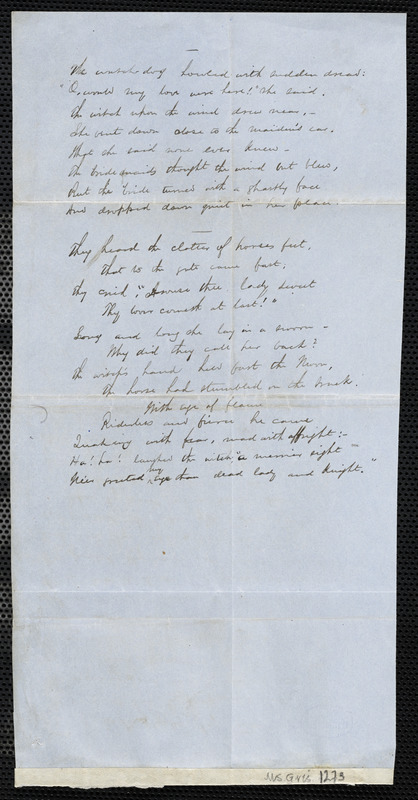 The watch-dog howled with sudden dread:
"O, would my love were here!" she said.
The witch upon the wind drew near, –
She bent down close to the maiden's ear.
What she said none ever knew –
The bridesmaids thought the wind but blew,
But the bride turned with a ghastly face
And dropped down quiet in her place.
They heard the clatter of horses feet,
That to the gate came fast;
They cried, "Arise thee lady sweet
Thy lover cometh at last!"
Long and long she lay in a swoon –
Why did they call her back?
The witch's hand held fast the
The horse had stumbled on the track.
With eye of flame
Riderless and fierce he came
Quaking with fear, mad with affright: –
Ha! ha! laughed the witch "a merrier sight
Ne'er greeted my eye than dead lady and knight."
MS. Gris. 1273